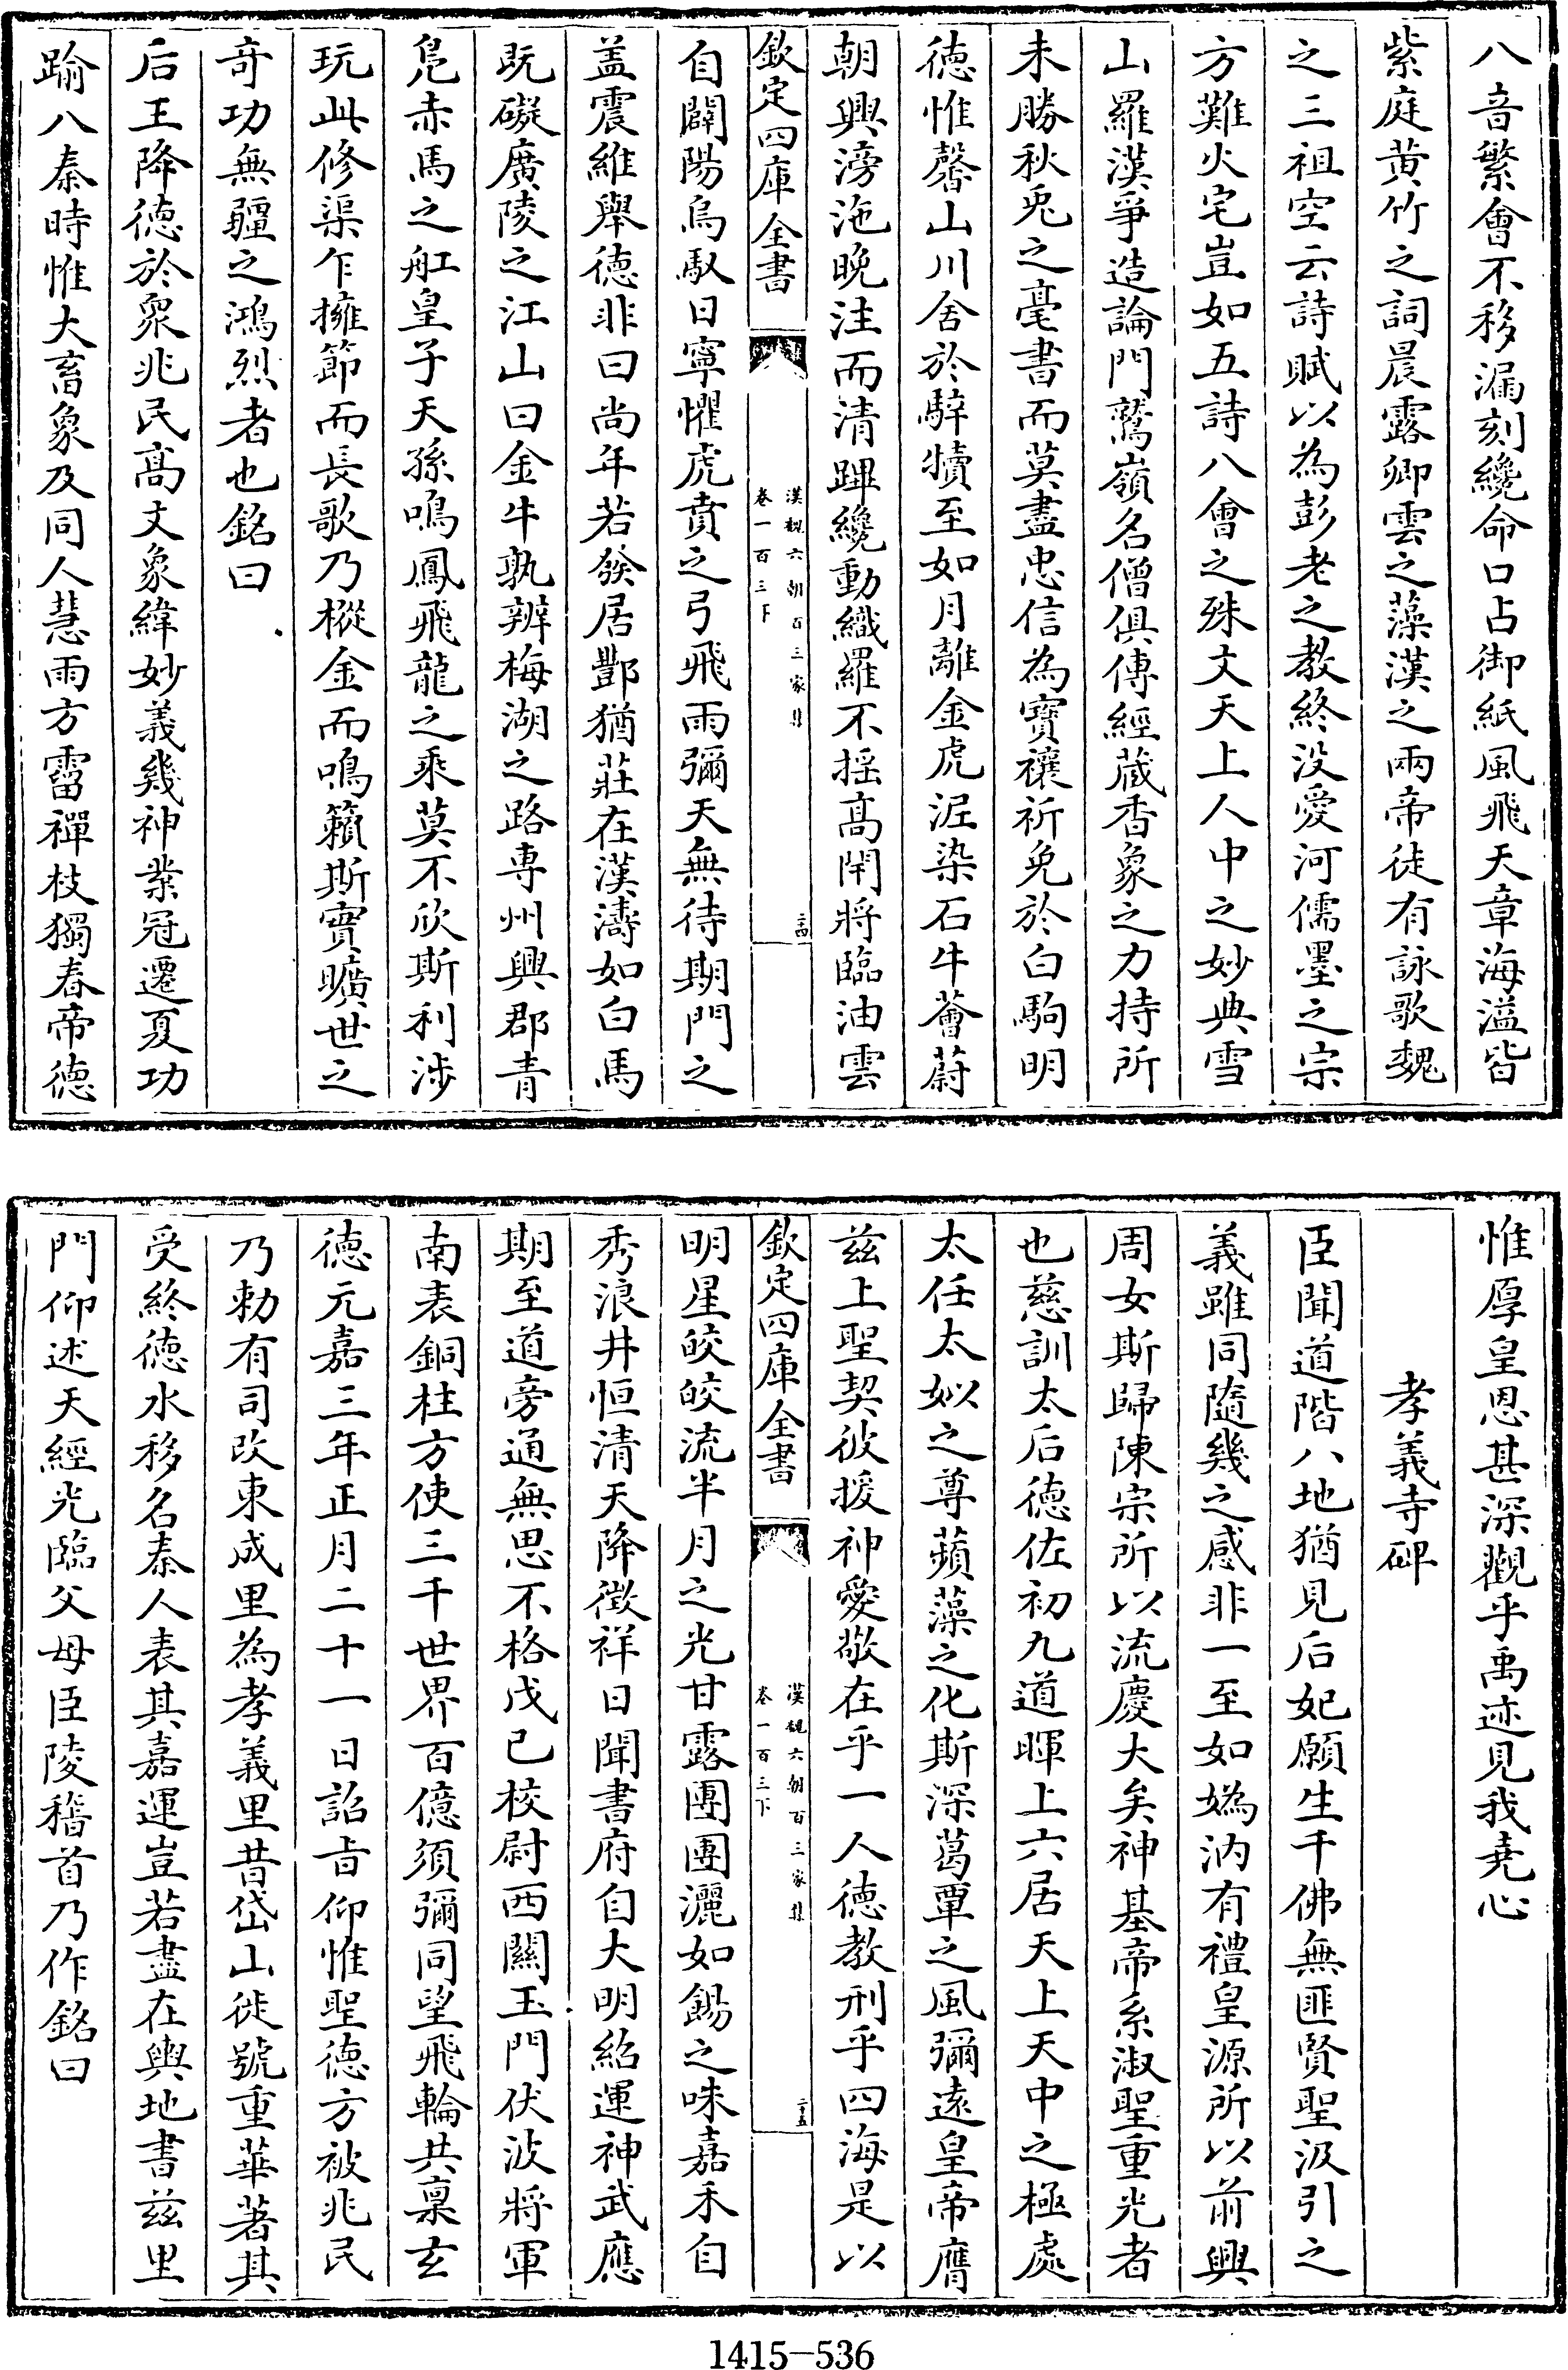 八音繁會不移漏刻纔命口占御紙風飛天章海溢皆
紫庭黄竹之詞晨露卿雲之藻漢之兩帝徒有詠歌魏
之三祖空云詩賦以為彭老之教終没愛河儒墨之宗
方難火宅豈如五詩八會之殊文天上人中之妙典雪
山羅漢爭造論門鷲嶺名僧俱傳經蔵香象之力持所
未勝秋兎之毫書而莫盡忠信為寳禳祈免於白駒明
德惟馨山川舍於騂犢至如月離金虎泥染石牛薈蔚
朝興滂沲晩注而清蹕纔動織羅不揺髙閈將臨油雲
欽定四庫全書
漢魏六朝百三家集
卷一百三下
二十四
自闢陽烏馭日寧懼虎賁之弓飛雨彌天無待期門之
盖震維舉德非曰尚年若發居酆猶莊在漢濤如白馬
既礙廣陵之江山曰金牛孰辨梅湖之路専州興郡青
鳬赤馬之舡皇子天孫鳴鳳飛龍之乘莫不欣斯利涉
玩此修渠乍擁節而長歌乃樅金而鳴籟斯實曠世之
奇功無疆之鴻烈者也銘曰
后王降德於衆兆民髙文象緯妙義幾神業冠遷夏功
踰八秦時惟大畜象及同人慧雨方霤禪枝獨春帝德
惟厚皇恩甚深觀乎禹迹見我堯心
孝義寺碑
臣聞道階八地猶見后妃願生千佛無匪賢聖汲引之
義雖同隨幾之感非一至如媯汭有禮皇源所以前興
周女斯歸陳宗所以流慶大矣神基帝系淑聖重光者
也慈訓太后德佐初九道暉上六居天上天中之極處
太任太姒之尊蘋藻之化斯深葛覃之風彌逺皇帝膺
兹上聖契彼援神愛敬在乎一人德教刑乎四海是以
欽定四庫全書
漢魏六朝百三家集
卷一百三下
二十五
明星皎皎流半月之光甘露團團灑如錫之味嘉禾自
秀浪井恒清天降徴祥日聞書府自大明紹運神武應
期至道旁通無思不格戊己校尉西關玉門伏波將軍
南表銅柱方使三千世界百億須彌同望飛輪共禀玄
德元嘉三年正月二十一日詔㫖仰惟聖德方被兆民
乃勅有司改東成里為孝義里昔岱山徙號重華著其
受終德水移名秦人表其嘉運豈若盡在輿地書兹里
門仰述天經光臨父母臣陵稽首乃作銘曰
1415—536